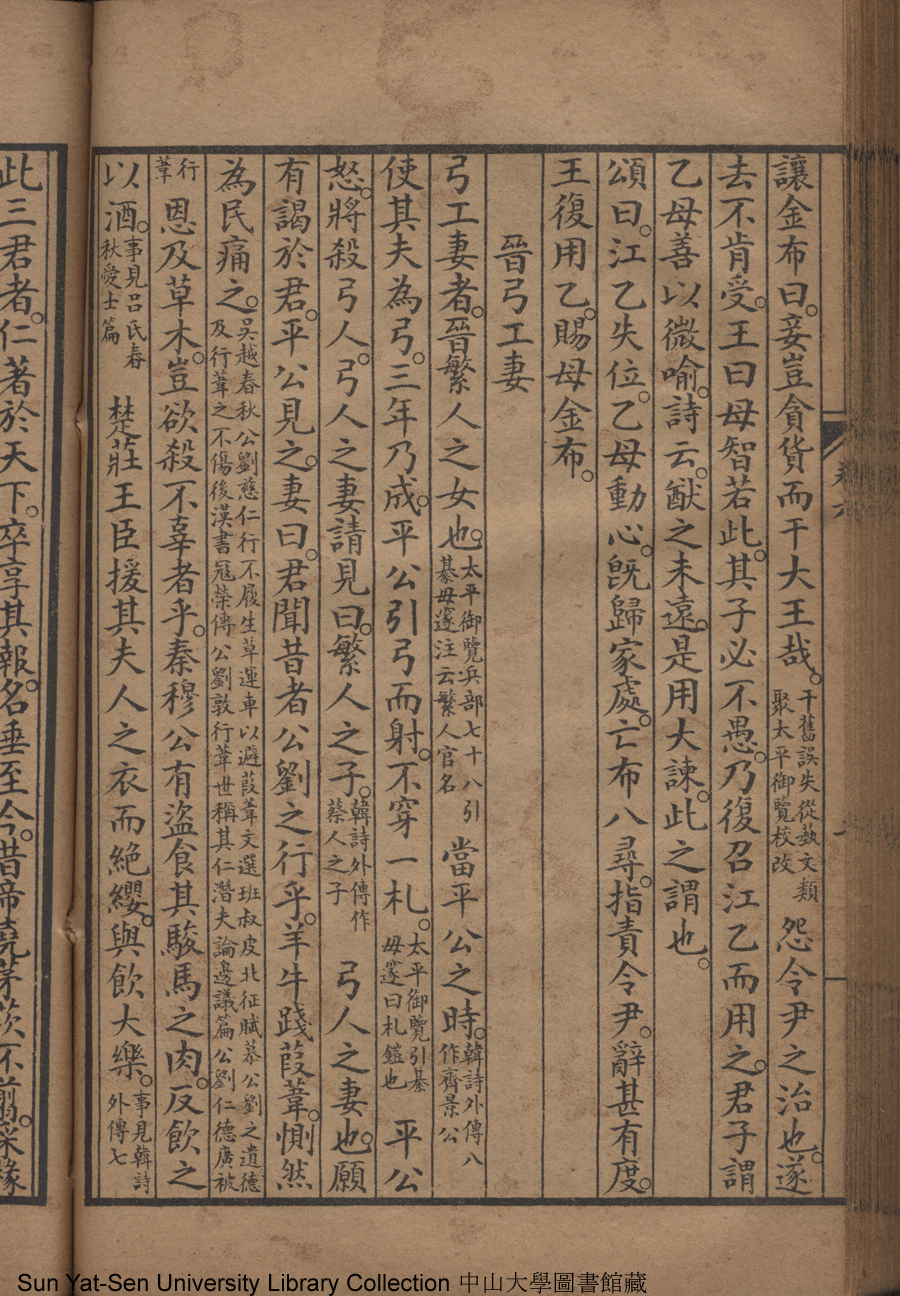 讓金布曰。妾豈貪貨而干大王哉。干舊誤失從蓺文類聚太平御覽校改怨令尹之治也。遂
去不肯受。王曰母智若此。其子必不愚。乃復召江乙而用之。君子謂
乙母善以微喻。詩云。猷之未遠。是用大諫。此之謂也。
頌曰。江乙失位。乙母動心。旣歸家處。亡布八尋。指責令尹。辭甚有度。
王復用乙。賜母金布。
晉弓工妻
弓工妻者。晉繁人之女也。太平御覽兵部七十八引綦毋邃注云繁人官名當平公之時。韓詩外傳八作齊景公
使其夫為弓。三年乃成。平公引弓而射。不穿一札。太平御覽引綦毋邃曰札鎧也平公
怒。將殺弓人。弓人之妻請見曰。繁人之子。韓詩外傳作蔡人之子弓人之妻也。願
有謁於君。平公見之。妻曰。君聞昔者公劉之行乎。羊牛踐葭葦。惻然
為民痛之。吳越春秋公劉慈仁行不履生草運車以避葭葦文選班叔皮北征賦慕公劉之遺德及行葦之不傷後漢書寇榮傳公劉敦行葦世稱其仁潛夫論邊議篇公劉仁德廣被
行葦恩及草木。豈欲殺不辜者乎。秦穆公有盜食其駿馬之肉。反飲之
以酒。事見呂氏春秋愛士篇楚莊王臣援其夫人之衣而絕纓。與飲大樂。事見韓詩外傳七
此三君者。仁著於天下。卒享其報。名垂至今。昔帝堯茅茨不翦。采椽
Sun Yat-Sen University Library Collection 中山大學圖書館藏